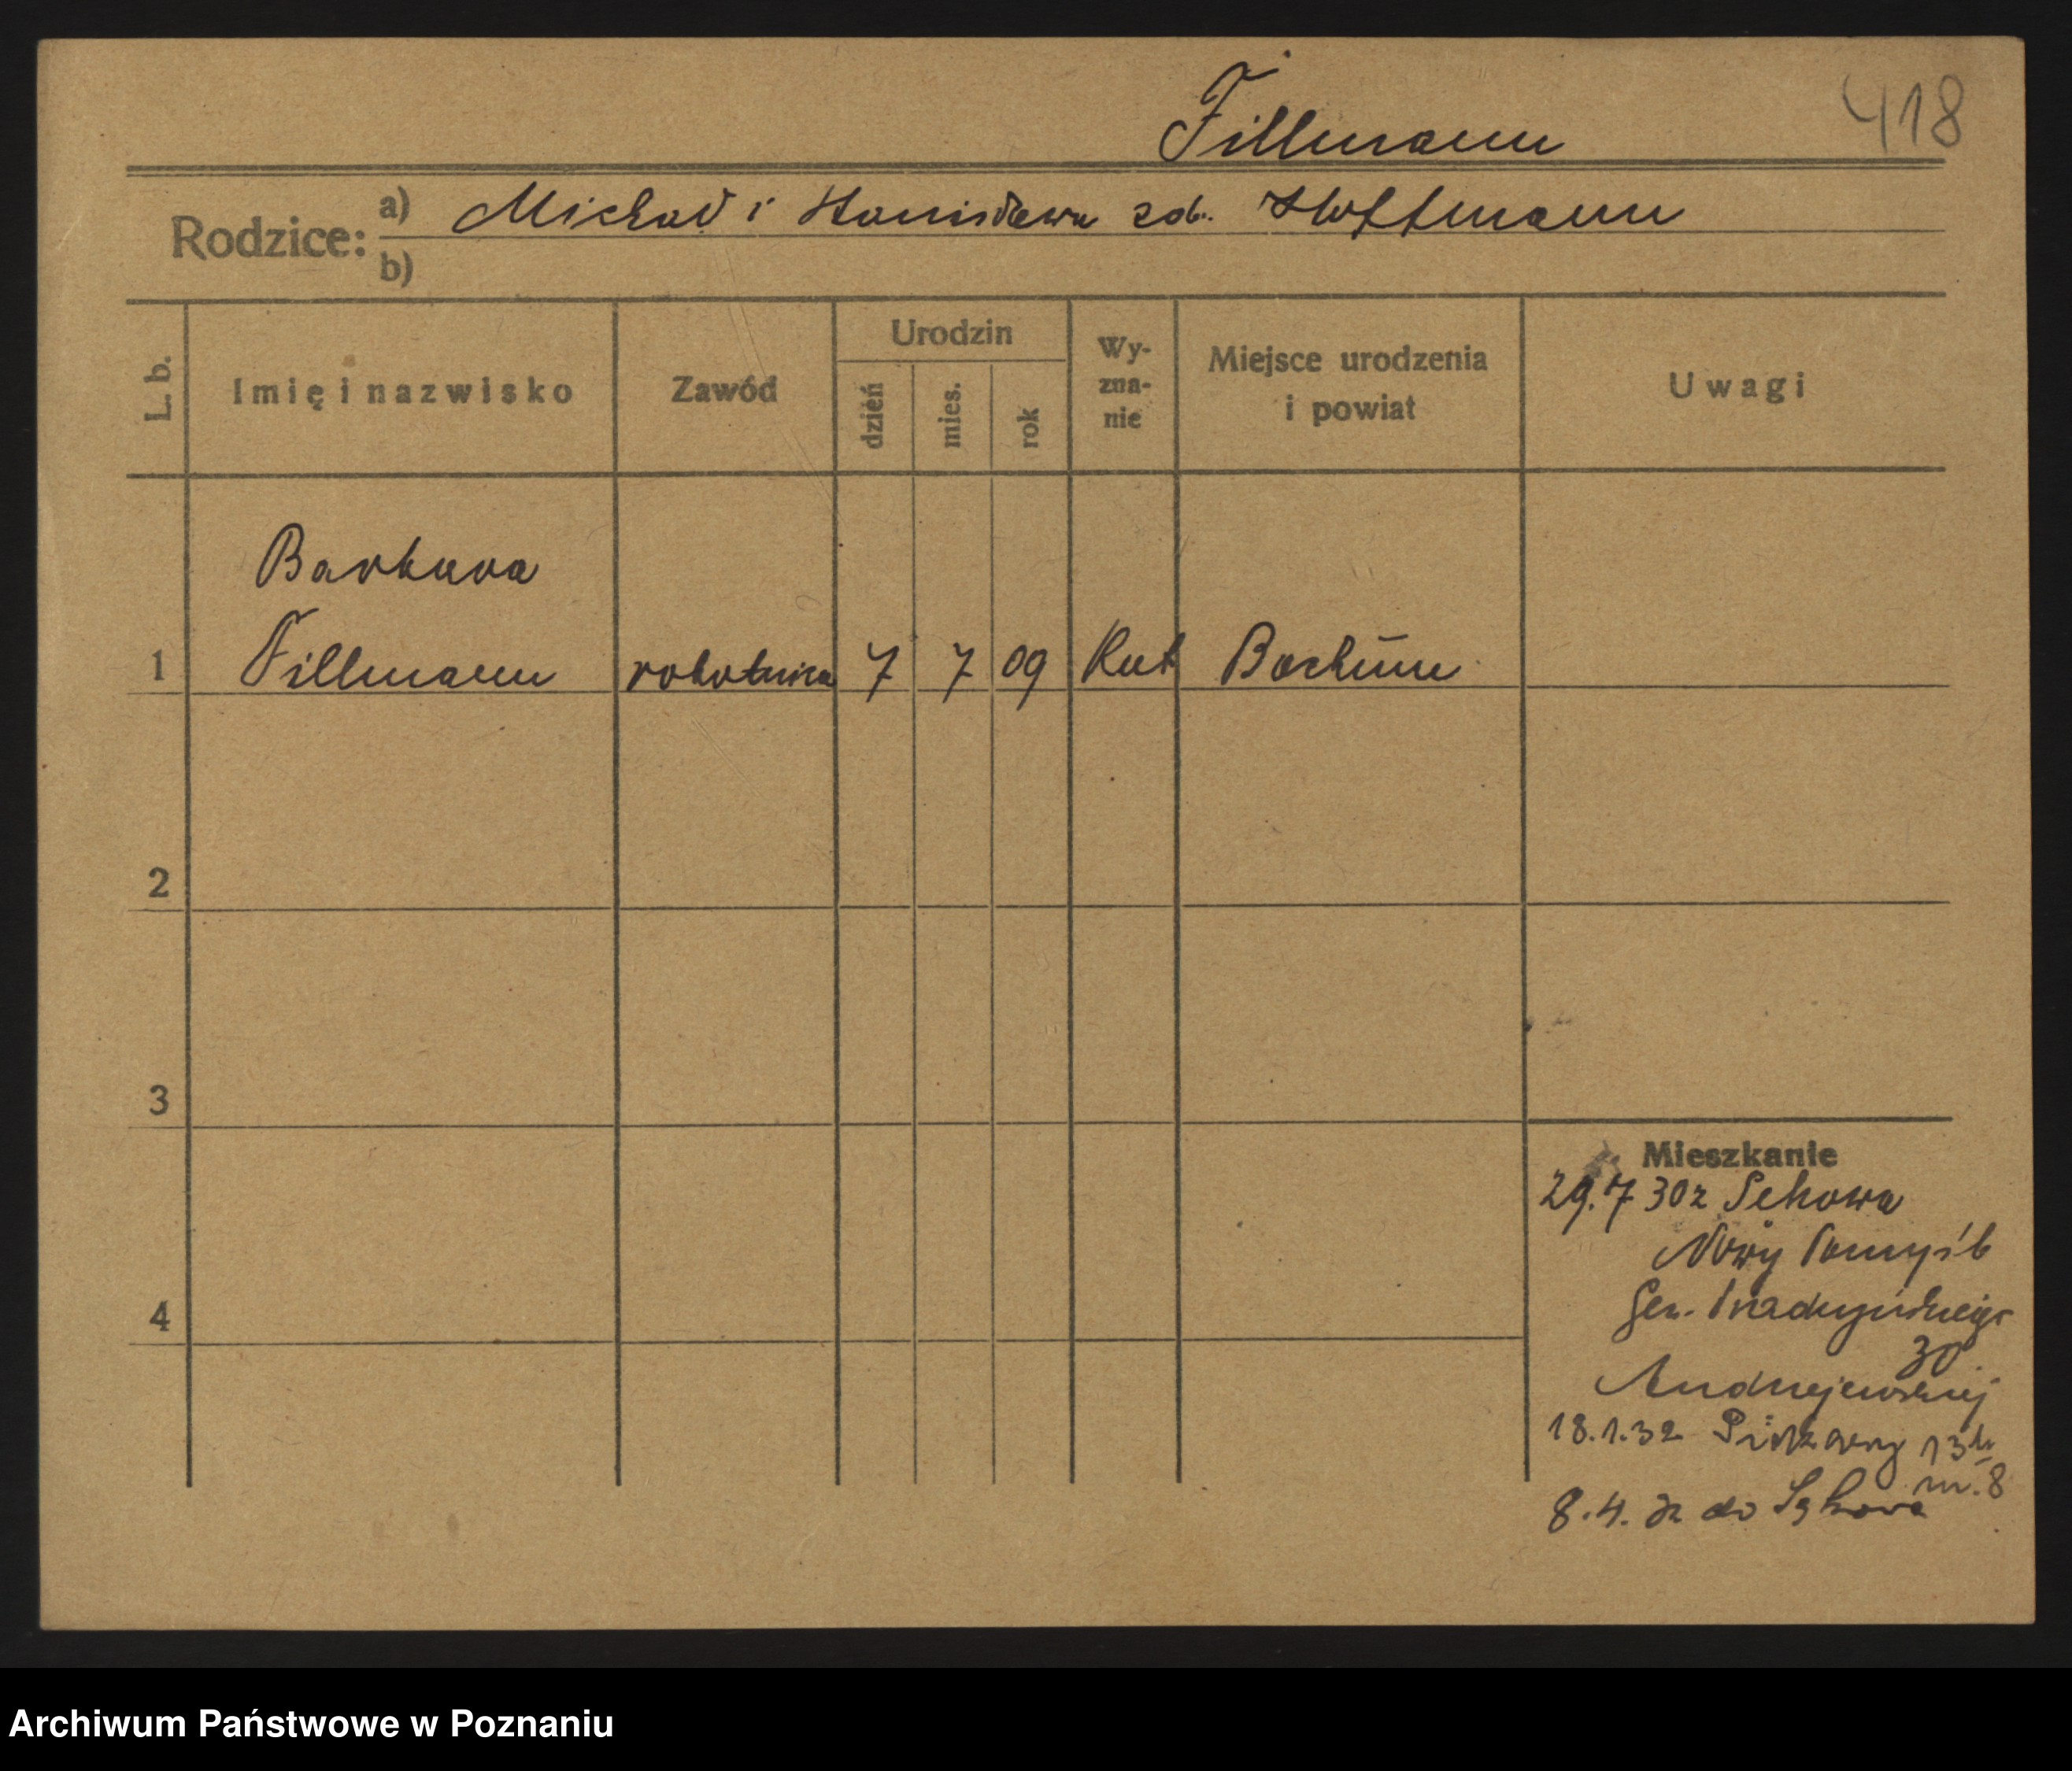 Fillmann
418
Rodzice: a) Michał i Stanisława zd. Hoffmann
b)
L. b. Imię i nazwisko Zawód Urodzin dzień mies. rok Wy-zna-nie Miejsce urodzenia i powiat Uwagi
Barbara
1 Fillmann robotnica 7 7 09 Kat Bochum
2
3
Mieszkanie
29.7 30 z Sękowa
Nowy Tomyśl
4
Gen. Prądzyńskiego
30
Andrzejewskiej
18.1.32 Piekary 13b
m. 8
8.4. 32 do Sękowa
Archiwum Państwowe w Poznaniu